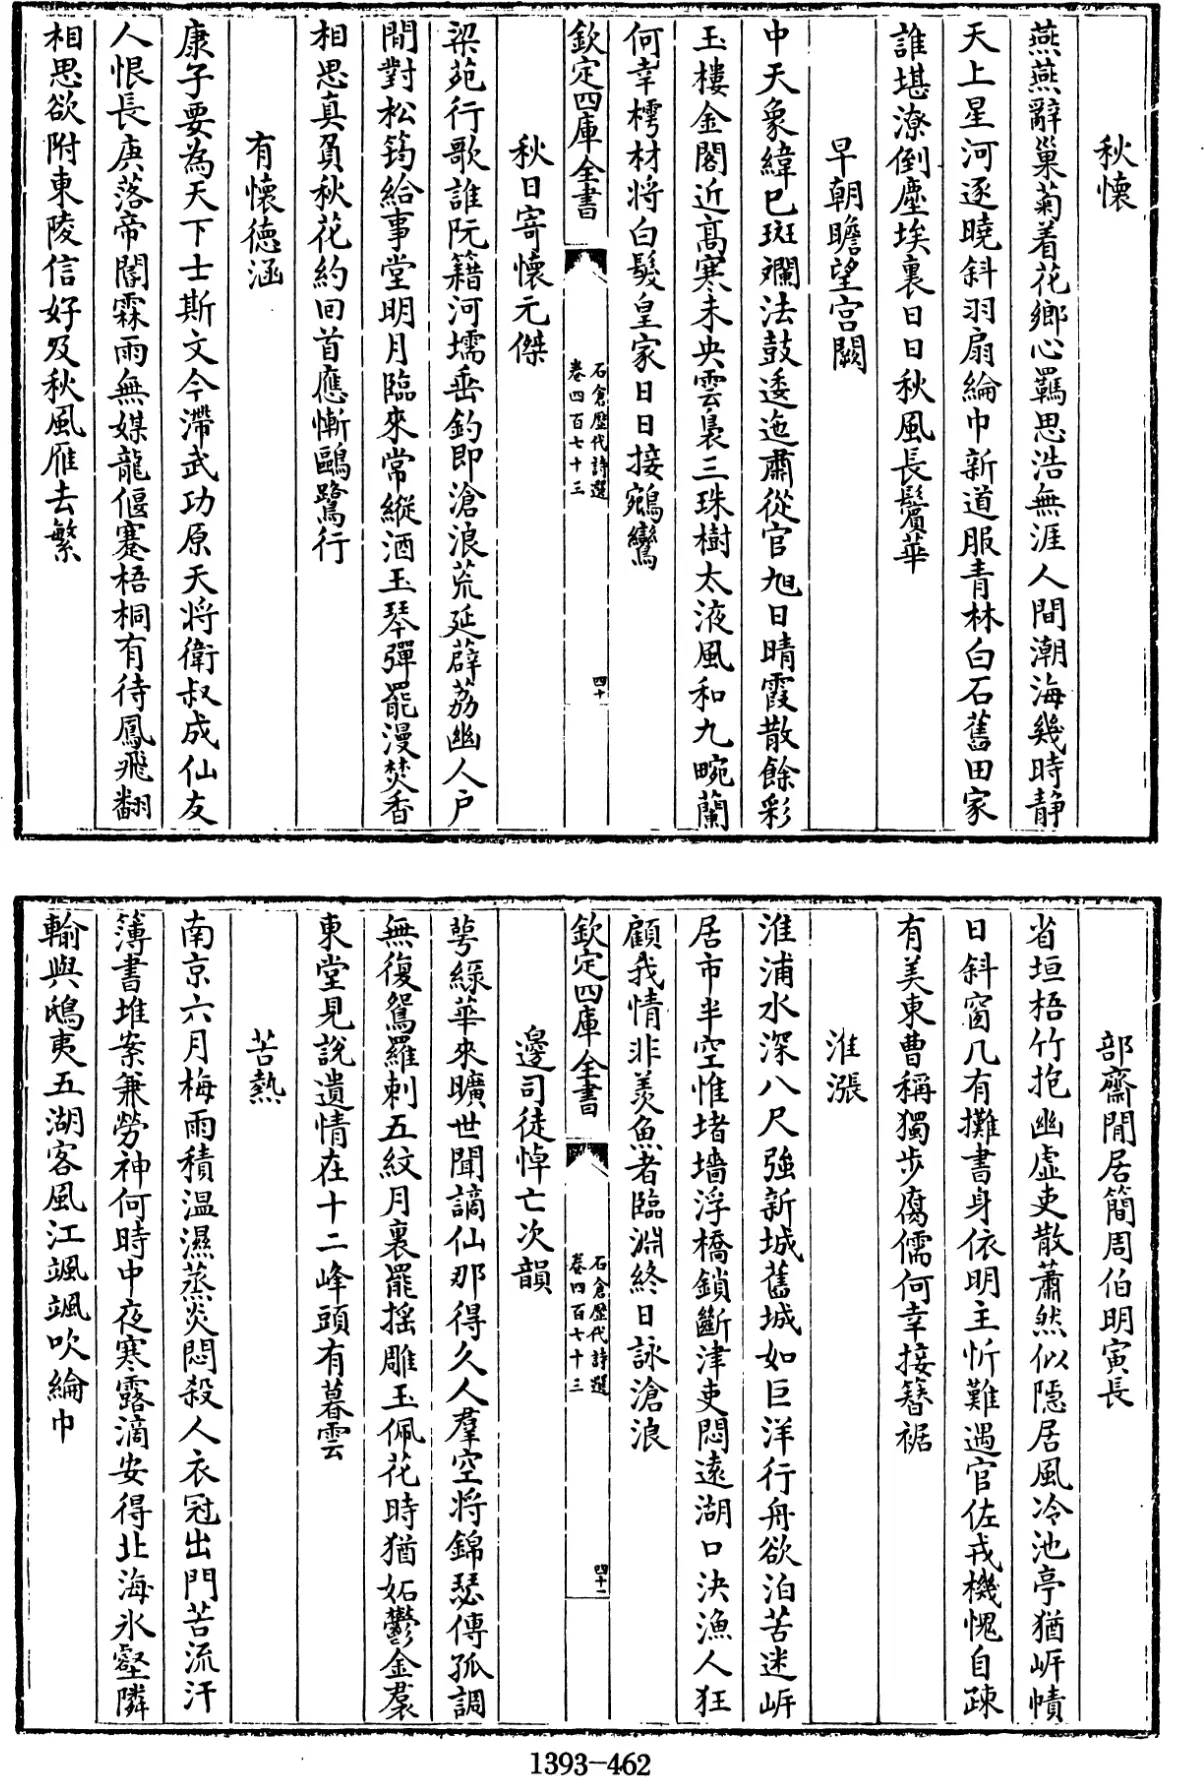 秋懷
燕燕辭巢菊着花鄉心羈思浩無涯人間潮海幾時靜
天上星河逐曉斜羽扇綸巾新道服青林白石舊田家
誰堪潦倒塵埃裏日日秋風長鬢華
早朝瞻望宮闕
中天象緯已斑斕法鼓逶迤肅從官旭日晴霞散餘彩
玉樓金閣近高寒未央雲裊三珠樹太液風和九畹蘭
何幸樗材將白髮皇家日日接鵷鸞
欽定四庫全書
石倉歷代詩選
卷四百七十三
四十
秋日寄懷元傑
梁苑行歌誰阮籍河壖垂釣即滄浪荒延薜荔幽人户
閒對松筠給事堂明月臨來常縱酒玉琴彈罷漫焚香
相思真負秋花約回首應慚鷗鷺行
有懷德涵
康子要為天下士斯文今滯武功原天將衛叔成仙友
人恨長庚落帝閽霖雨無媒龍偃蹇梧桐有待鳳飛翻
相思欲附東陵信好及秋風雁去繁
部齋閒居簡周伯明寅長
省垣梧竹抱幽虛吏散蕭然似隱居風冷池亭猶岸幘
日斜窗几有攤書身依明主忻難遇官佐戎機愧自疎
有美東曹稱獨步腐儒何幸接簪裾
淮漲
淮浦水深八尺強新城舊城如巨洋行舟欲泊苦迷岸
居市半空惟堵墻浮橋鎖斷津吏悶遠湖口決漁人狂
顧我情非羨魚者臨淵終日詠滄浪
欽定四庫全書
石倉歷代詩選
卷四百七十三
四十一
邊司徒悼亡次韻
萼綠華來曠世聞謫仙那得久人羣空將錦瑟傳孤調
無復鴛羅刺五紋月裏罷搖雕玉佩花時猶妬鬱金裠
東堂見說遺情在十二峰頭有暮雲
苦熱
南京六月梅雨積温濕蒸炎悶殺人衣冠出門苦流汗
簿書堆案兼勞神何時中夜寒露滴安得北海氷壑隣
輸與鴟夷五湖客風江颯颯吹綸巾
1393-462